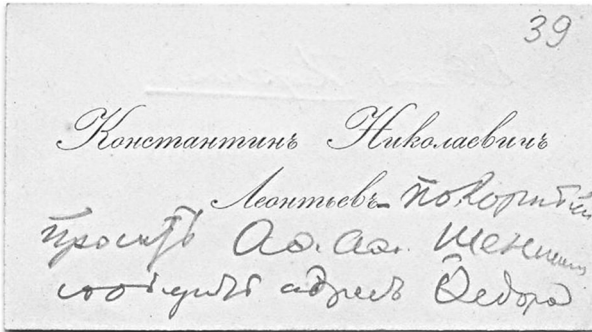 39
Константинъ Николаевичъ
Леонтьевъ покорнѣйше
проситъ Аѳ. Аѳ. Шеншина
сообщить адресъ Ѳедора